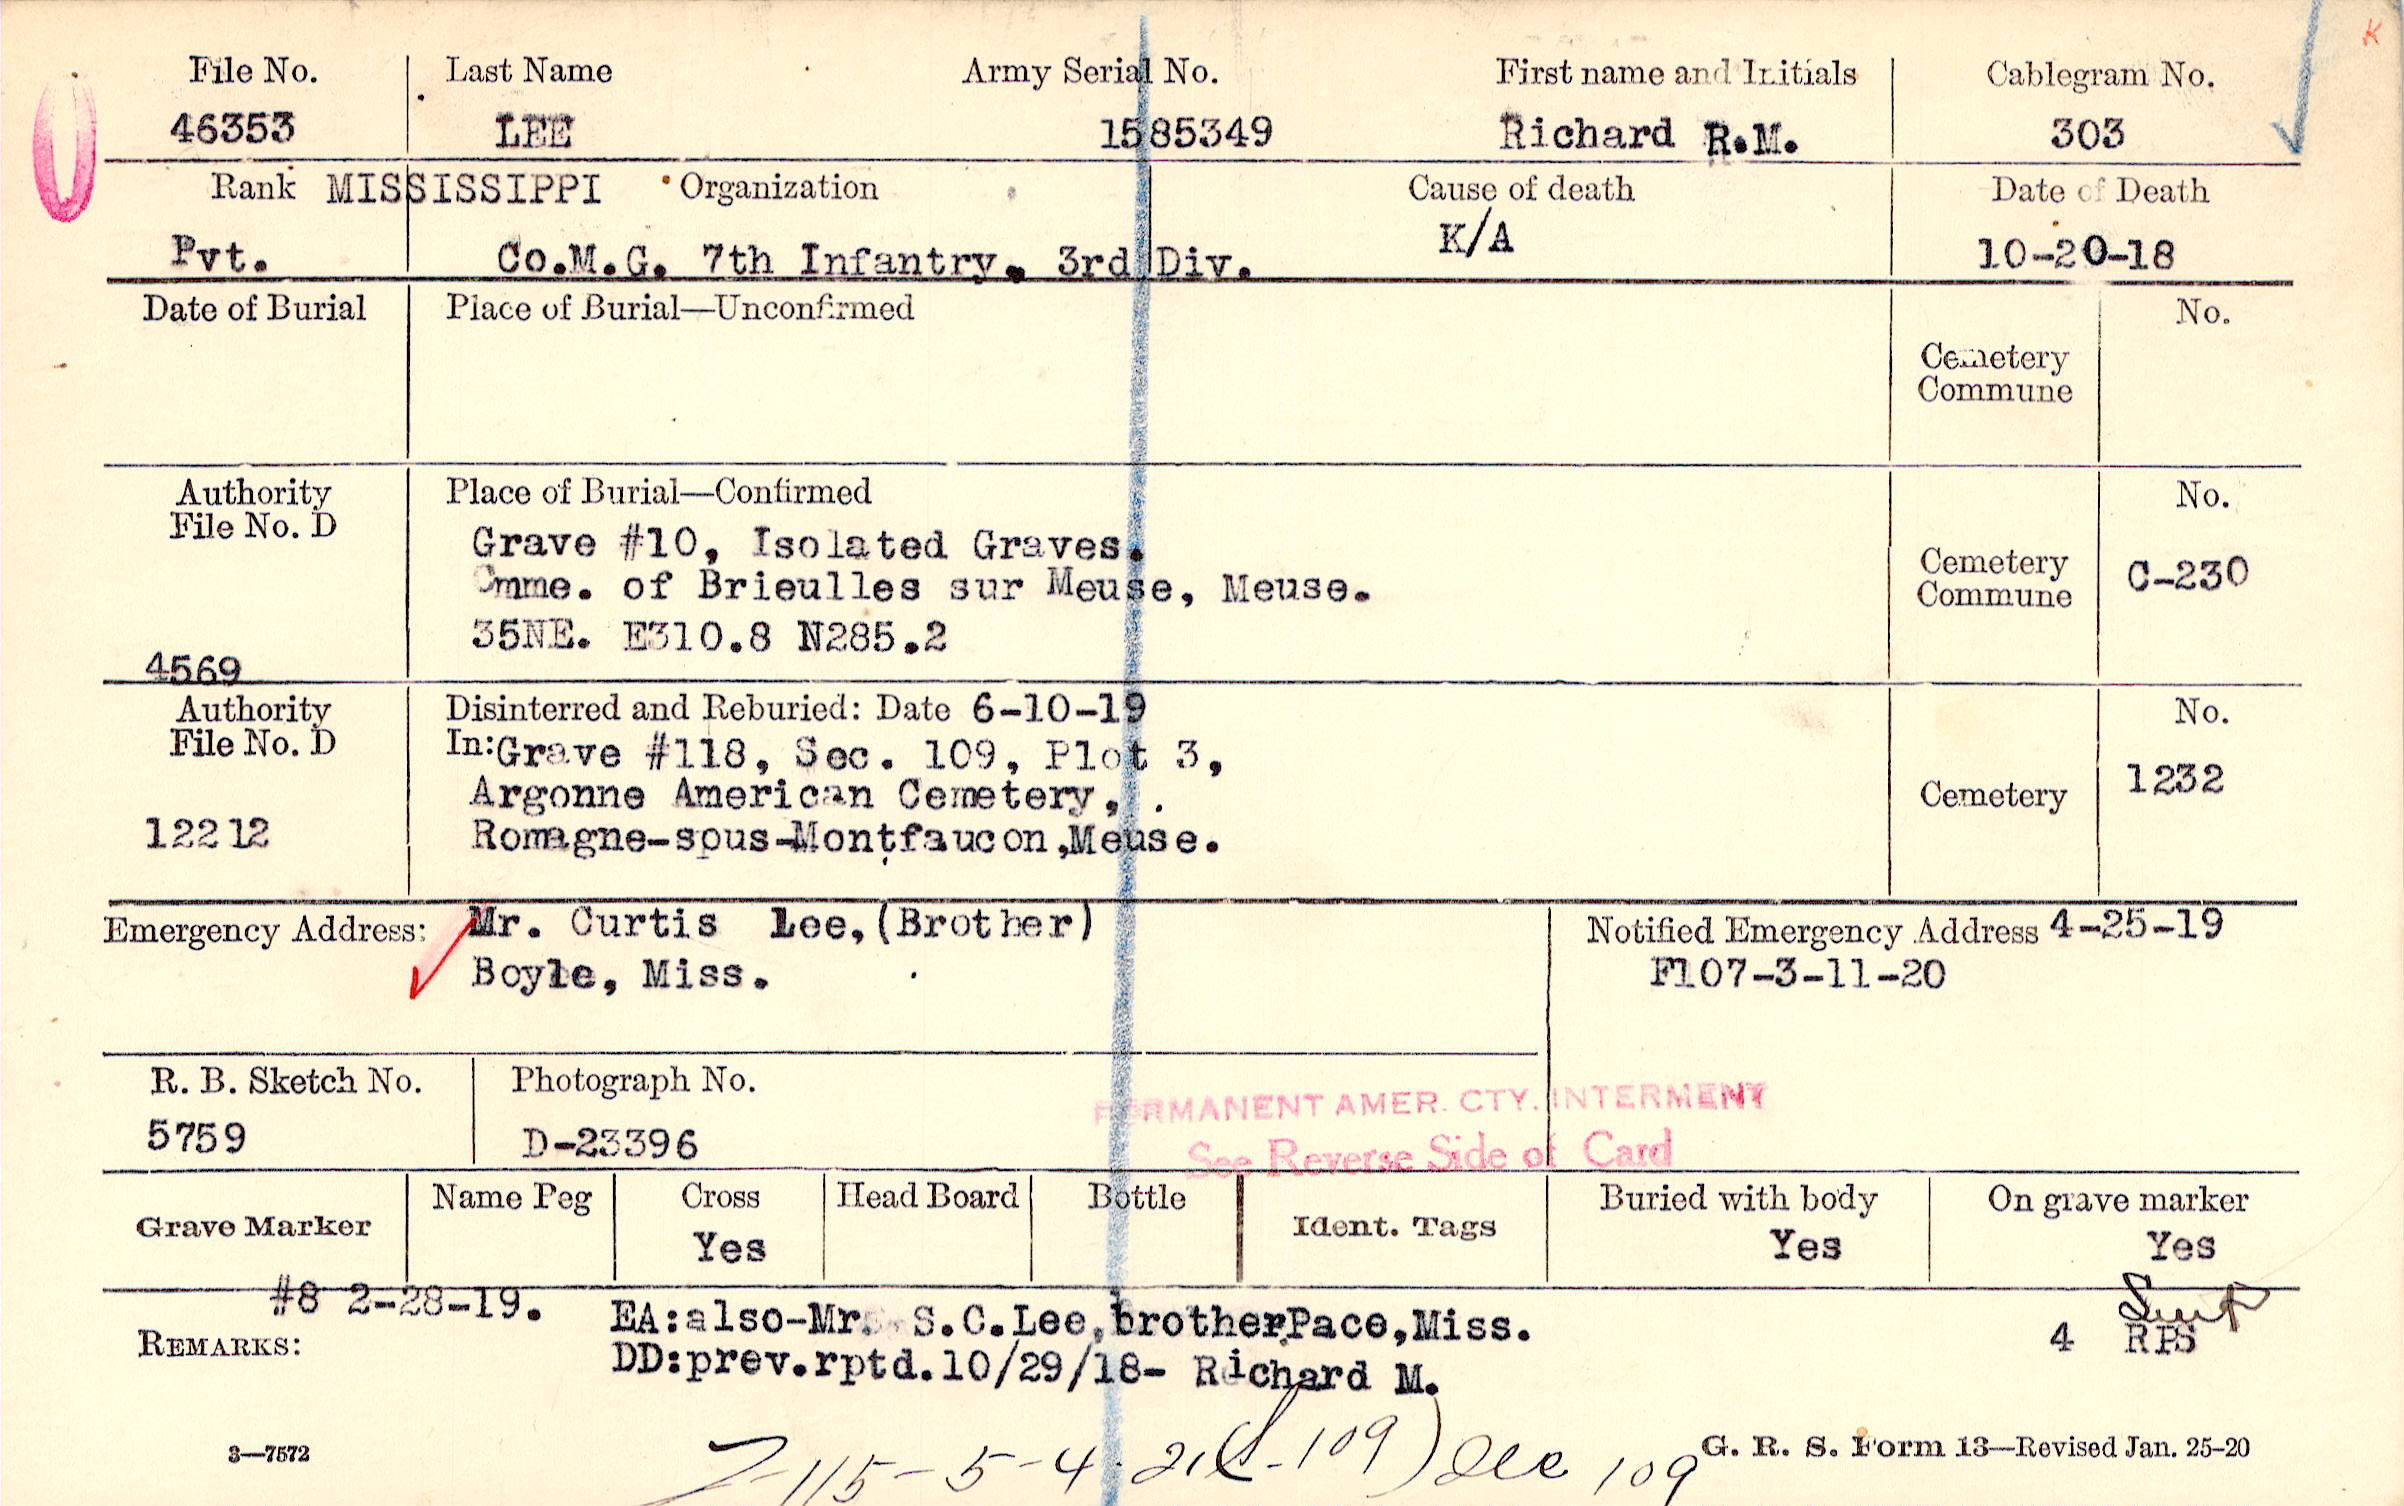 K
File No. Last Name Army Serial No. First name and Initials Cablegram No.
46353 LEE 1585349 Richard R.M. 303
Rank MISSISSIPPI Organization Cause of death Date of Death
Pvt. Co.M.G. 7th Infantry. 3rd Div. K/A 10-20-18
Date of Burial Place of Burial—Unconfirmed No.
Cemetery
Commune
Authority Place of Burial—Confirmed No.
File No. D
Grave #10, Isolated Graves.
Cmme. of Brieulles sur Meuse, Meuse. Cemetery Commune C-230
35NE. E310.8 N285.2
4569
Authority Disinterred and Reburied: Date 6-10-19 No.
File No. D In: Grave #118, Sec. 109, Plot 3,
Argonne American Cemetery, . Cemetery 1232
12212 Romagne-sous-Montfaucon,Meuse.
Emergency Address: Mr. Curtis Lee,(Brother) Notified Emergency Address 4-25-19
Boyle, Miss. F107-3-11-20
R. B. Sketch No. Photograph No.
5759 D-23396
PERMANENT AMER. CTY. INTERMENT
See Reverse Side of Card
Grave Marker Name Peg Cross Head Board Bottle Ident. Tags Buried with body On grave marker
Yes Yes Yes
#8 2-28-19.
REMARKS: EA:also-Mr. S.C.Lee,brotherPace,Miss.
DD:prev.rptd.10/29/18- Richard M. 4 RPS
3—7572 G. R. S. Form 13—Revised Jan. 25-20
-115-5-4-21(S-109) Dec 109